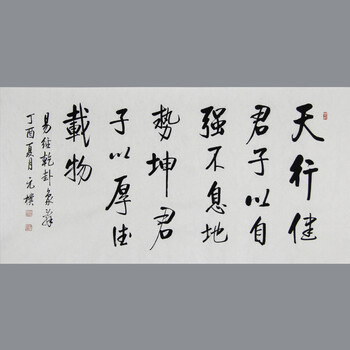 天行健
君子以自
强不息地
勢坤君
子以厚德
載物
易经乾卦象辞
丁酉夏月元樸